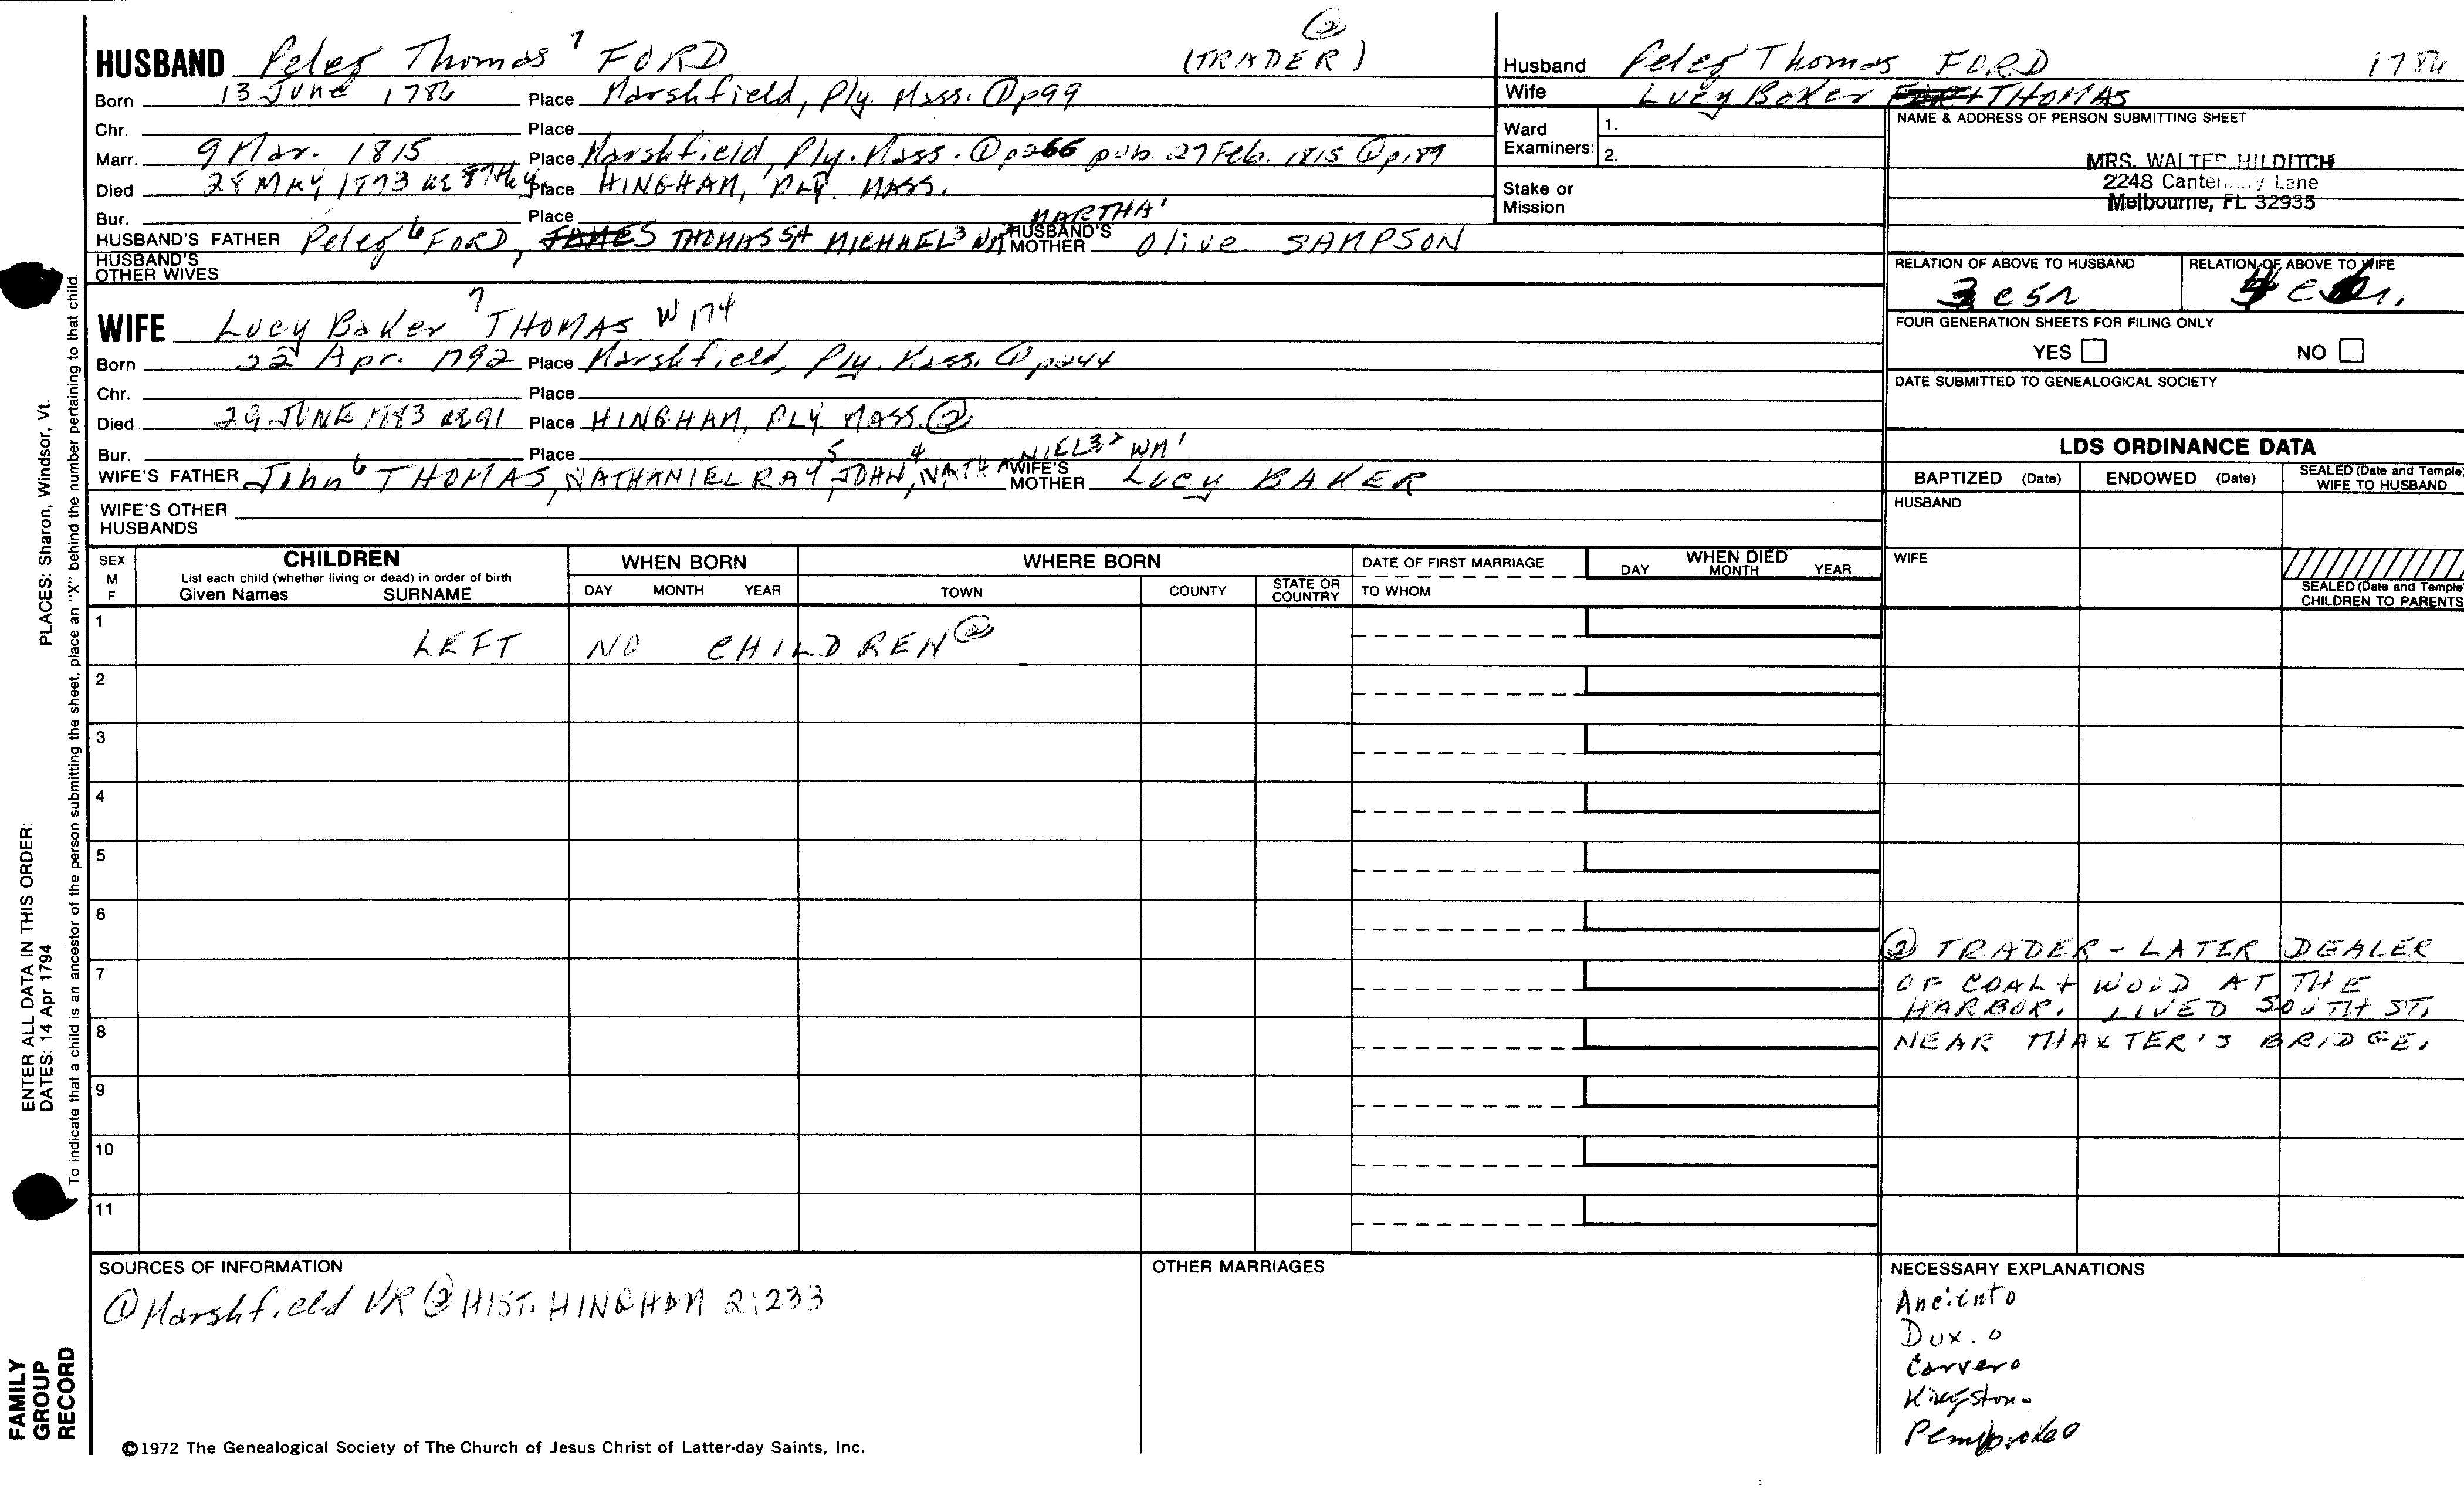 ②
HUSBAND Peleg Thomas 7 FORD (TRADER)
Born 13 June 1786 Place Marshfield, Ply. Mass. ① p99
Chr. Place
Marr. 9 Mar. 1815 Place Marshfield, Ply. Mass. ① p266 pub. 27 Feb. 1815 ① p189
Died 28 MAY 1873 ae 87th y Place HINGHAM, PLY. MASS.
Bur. Place
MARTHA 1
HUSBAND'S FATHER Peleg 6 FORD, THOMAS 5,4 MICHAEL 3 WM HUSBAND'S MOTHER Olive SAMPSON
HUSBAND'S OTHER WIVES
WIFE Lucy Baker 7 THOMAS W174
Born 22 Apr. 1792 Place Marshfield, Ply. Mass. ① p244
Chr. Place
Died 29 JUNE 1883 ae 91 Place HINGHAM, PLY MASS. ②
Bur. Place
WIFE'S FATHER John 6 THOMAS, NATHANIEL RAY 5, JOHN 4, NATHANIEL 3,2 WM 1 WIFE'S MOTHER Lucy BAKER
WIFE'S OTHER HUSBANDS
Husband Peleg Thomas FORD 1786
Wife Lucy Baker THOMAS
Ward Examiners: 1.
2.
Stake or Mission
NAME & ADDRESS OF PERSON SUBMITTING SHEET
MRS. WALTER HILDITCH
2248 Lane
Melbourne, FL 32935
RELATION OF ABOVE TO HUSBAND RELATION OF ABOVE TO WIFE
3 c 5 r
FOUR GENERATION SHEETS FOR FILING ONLY
YES NO
DATE SUBMITTED TO GENEALOGICAL SOCIETY
LDS ORDINANCE DATA
BAPTIZED (Date) ENDOWED (Date) SEALED (Date and Temple) WIFE TO HUSBAND
HUSBAND
WIFE
SEALED (Date and Temple) CHILDREN TO PARENTS
SEX M F
CHILDREN
List each child (whether living or dead) in order of birth
Given Names SURNAME
WHEN BORN
DAY MONTH YEAR
WHERE BORN
TOWN COUNTY STATE OR COUNTRY
DATE OF FIRST MARRIAGE
TO WHOM
WHEN DIED
DAY MONTH YEAR
1 LEFT NO CHILDREN ②
2
3
4
5
6
7
8
9
10
11
② TRADER - LATER DEALER
OF COAL + WOOD AT THE
HARBOR. LIVED SOUTH ST.
NEAR THAXTER'S BRIDGE.
SOURCES OF INFORMATION
① Marshfield VR ② HIST. HINGHAM 2:233
OTHER MARRIAGES
NECESSARY EXPLANATIONS
Dux. o
Carver o
Kingston o
Pembroke o
©1972 The Genealogical Society of The Church of Jesus Christ of Latter-day Saints, Inc.
PLACES: Sharon, Windsor, Vt.
ENTER ALL DATA IN THIS ORDER:
DATES: 14 Apr 1794
To indicate that a child is an ancestor of the person submitting the sheet, place an "X" behind the number pertaining to that child.
FAMILY
GROUP
RECORD